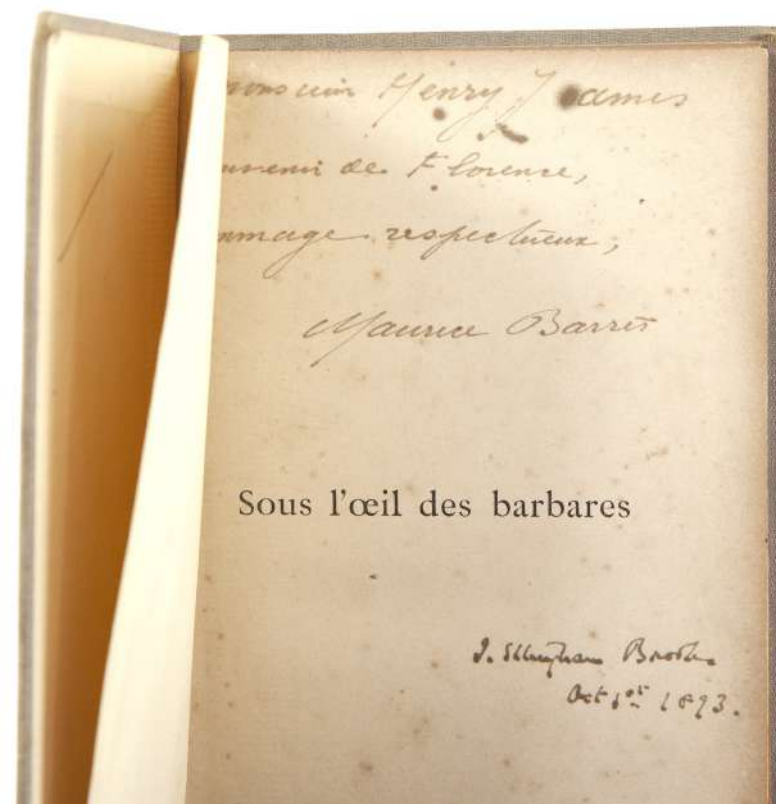 monsieur Henry James
uvenir de Florence,
mmage respectueux,
Maurice Barrès
Sous l'œil des barbares
J. Ellingham Brooks
Oct 1st 1893.